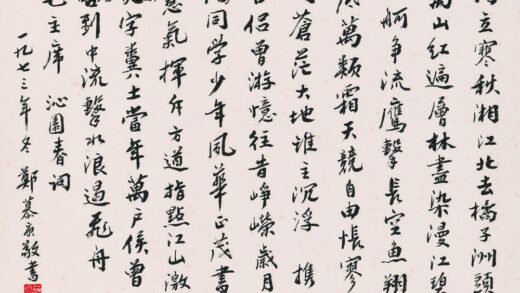 立寒秋湘江北去橘子洲頭
山紅遍層林盡染漫江碧
舸争流鷹擊長空魚翔
底萬類霜天競自由悵寥
蒼茫大地誰主沉浮 携
侶曾游憶往昔崢嶸歲月
同學少年風華正茂書
意氣揮斥方遒指點江山激
字糞土當年萬户侯曾
到中流擊水浪遏飛舟
毛主席 沁園春词
一九七三年冬 鄭慕康敬書